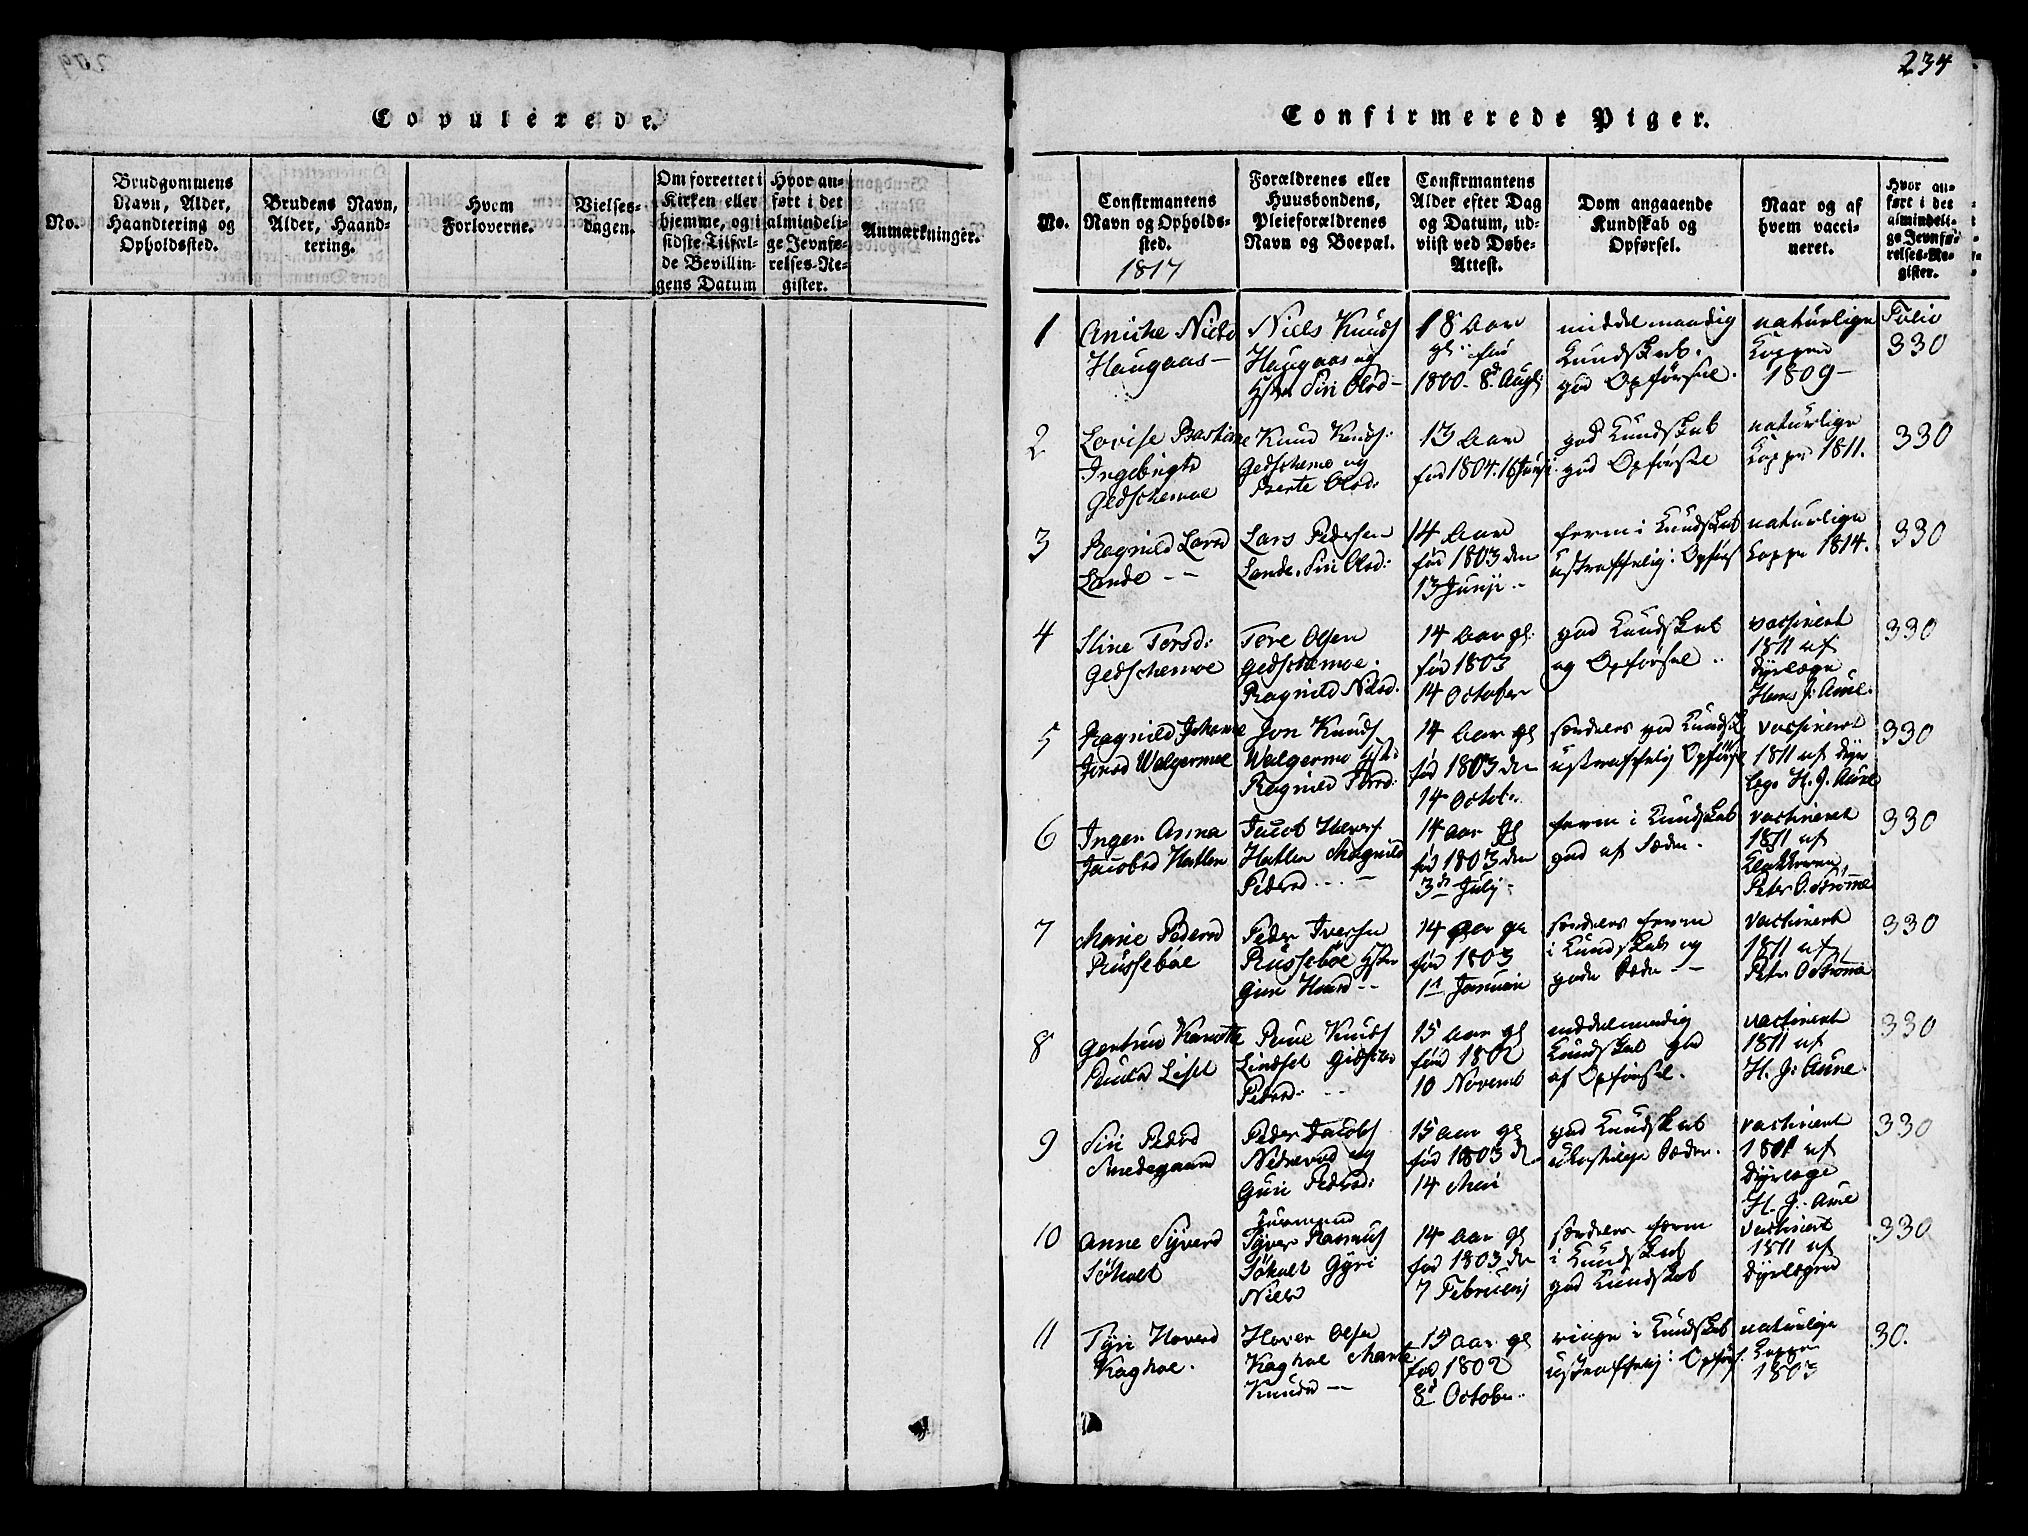 Copulerede.
No.
Brudgommens
Navn, Alder,
Haandtering og
Opholdssted.
Brudens Navn,
Alder, Haand-
tering.
Hvem
Forloverne.
Vielses-
dagen.
Om forrettet i
Kirken eller
hjemme, og i
sidste Tilfæl-
de Bevillin-
gens Datum
Hvor an-
ført i det
almindeli-
ge Jevnfø-
relses-Re-
gister.
Anmærkninger.
234
Confirmerede Piger.
No.
Confirmantens
Navn og Opholds-
sted.
1817
Forældrenes eller
Huusbondens,
Pleieforældrenes
Navn og Boepæl.
Confirmantens
Alder efter Dag
og Datum, ud-
viist ved Døbe-
Attest.
Dom angaaende
Kundskab og
Opførsel.
Naar og af
hvem vacci-
neret.
Hvor an-
ført i det
almindeli-
ge Jevnfø-
relses-Re-
gister.
1
Haugaas
Niels Knuds
Haugaas og
Siri Olsd
18 Aar
gl. fød
1800 8d Augti
middelmaadig
Kundskab.
god Opførsel.
naturlige
Kopper
1809
Folio
330
2
Lovise Bastine
Gedschemoe
Knud Knuds:
Gedschemo og
Berte Olsd:
13 Aar
fød 1804. 16 Junji
god Kundskab
god Opførsel
naturlige
Kopper 1811.
330
3
Ragnild Larsd
Lande
Lars Pedersen
Lande. Siri Olsd:
14 Aar
fød 1803 den
13 Junji
ferm i Kundskab
ustraffelig i Opførs
naturlige
Koppe 1814.
330
4
Stine Torsd:
Gedschemoe
Tore Olsen
Gedschemoe.
Ragnild Nilsd.
14 Aar gl.
fød 1803
14 October
god Kundskab
og Opførsel
vassineret
1811 af
Dyrlæge
Hans J: Aune.
330
5
Ragnild Johanne
Jonsd Walgermoe
Jon Knuds
Walgermo
Ragnild Torsd:
14 Aar gl
fød 1803 den
14 Octob.
særdeles god Kundsk
ustraffelig Opførsel
vassineret
1811 af Dyr
lege H. J. Aune
330
6
Inger Anna
Jacobsd Hatlen
Jacob
Hatlen Magnild
Pedersd
14 aar gl
fød 1803 den
3d Julij
ferm i Kundskab
god af Sæder.
vassineret
1811 af
Klokkeren
Peter O. Strømme
330
7
Marie Pedersd
Russeboe
Peder Iversen
Russeboe
Guri
14 Aar gl
fød 1803
1t Januari
særdeles ferm
i Kundskab og
gode Sæder
vassineret
1811 af
Peter O Strømme
330
8
Lisel
Knuds
Lindsel
Pedersd:
15 Aar gl
fød 1802
10 Novemb
middelmaadig
Kundskab god
af Opførsel.
vassineret
1811 af
H. J: Aune.
330
9
Siri Pedersd
Smedegaard
Peder Jacobs
og
Guri Pedersd:
15 aar gl
fød 1803 d.
14 Mai
god Kundskab
Sæder.
vassineret
1811 af
Dyrlæge
H. J: Aune
330
10
Anne Syversd
Søholt
Syver Rasmus
Søholt Gyri
Nielsd
14 Aar gl
fød 1803 den
7 Februarij
særdeles ferm
i Kundskab
god Kundskab
vassineret
1811 af
Dyrlægen
330
11
Tyri Haversd
Kaghoe.
Haver Olsen
Kaghoe Marte
Knudsd
15 Aar gl
fød 1802
8d October
ringe i Kundskab
ustraffelig i Opførs.
naturlige
Kopper
1803
30.